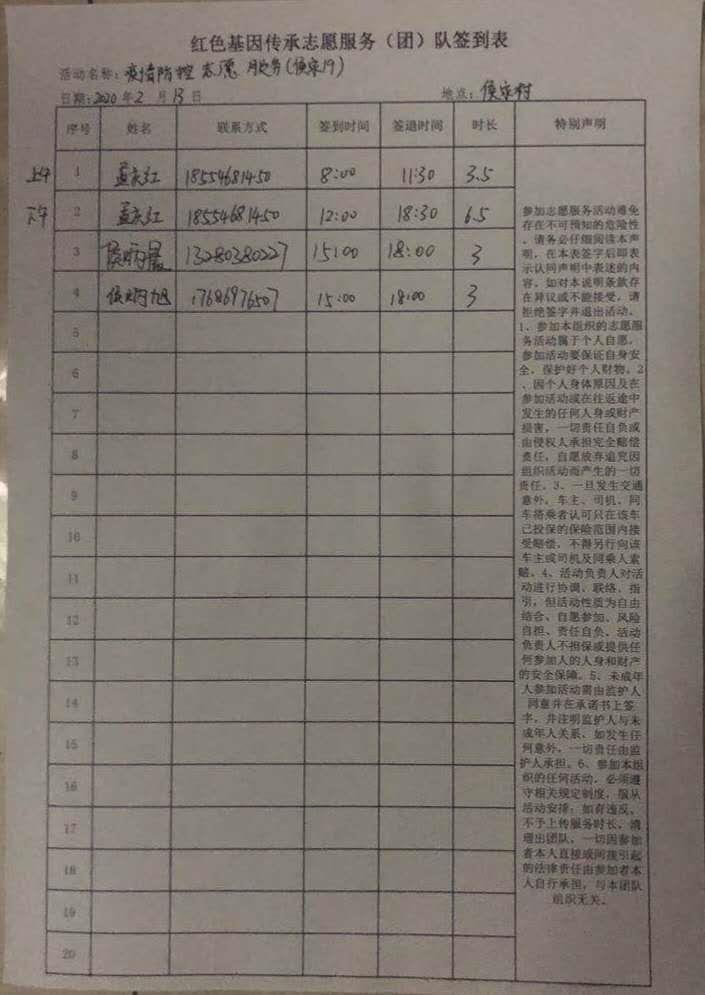 红色基因传承志愿服务（团）队签到表
活动名称：疫情防控志愿服务(侯家19)
日期：2020年2月13日 地点：侯家村
序号 姓名 联系方式 签到时间 签退时间 时长 特别声明
上午 1 孟庆红 18554681450 8:00 11:30 3.5
下午 2 孟庆红 18554681450 12:00 18:30 6.5
3 13280380227 15:00 18:00 3
4 17686976507 15:00 18:00 3
5
6
7
8
9
10
11
12
13
14
15
16
17
18
19
20
参加志愿服务活动难免
存在不可预知的危险性
，请务必仔细阅读本声
明，在本表签字后即表
示认同声明中表述的内
容。如对本说明条款存
在异议或不能接受，请
拒绝签字并退出活动。
1、参加本组织的志愿服
务活动属于个人自愿。
参加活动要保证自身安
全，保护好个人财物。2
、因个人身体原因及在
参加活动或在往返途中
发生的任何人身或财产
损害，一切责任自负或
由侵权人承担完全赔偿
责任，自愿放弃追究因
组织活动而产生的一切
责任。3、一旦发生交通
意外，车主、司机、同
车搭乘者认可只在该车
已投保的保险范围内接
受赔偿，不得另行向该
车主或司机及同乘人索
赔。4、活动负责人对活
动进行协调、联络、指
引，但活动性质为自由
结合、自愿参加、风险
自担、责任自负。活动
负责人不担保或提供任
何参加人的人身和财产
的安全保障。5、未成年
人参加活动需由监护人
同意并在承诺书上签
字，并注明监护人与未
成年人关系。如发生任
何意外，一切责任由监
护人承担。6、参加本组
织的任何活动，必须遵
守相关规定制度，服从
活动安排；如有违反，
不予上传服务时长，清
理出团队。一切因参加
者本人直接或间接引起
的法律责任由参加者本
人自行承担，与本团队
组织无关。